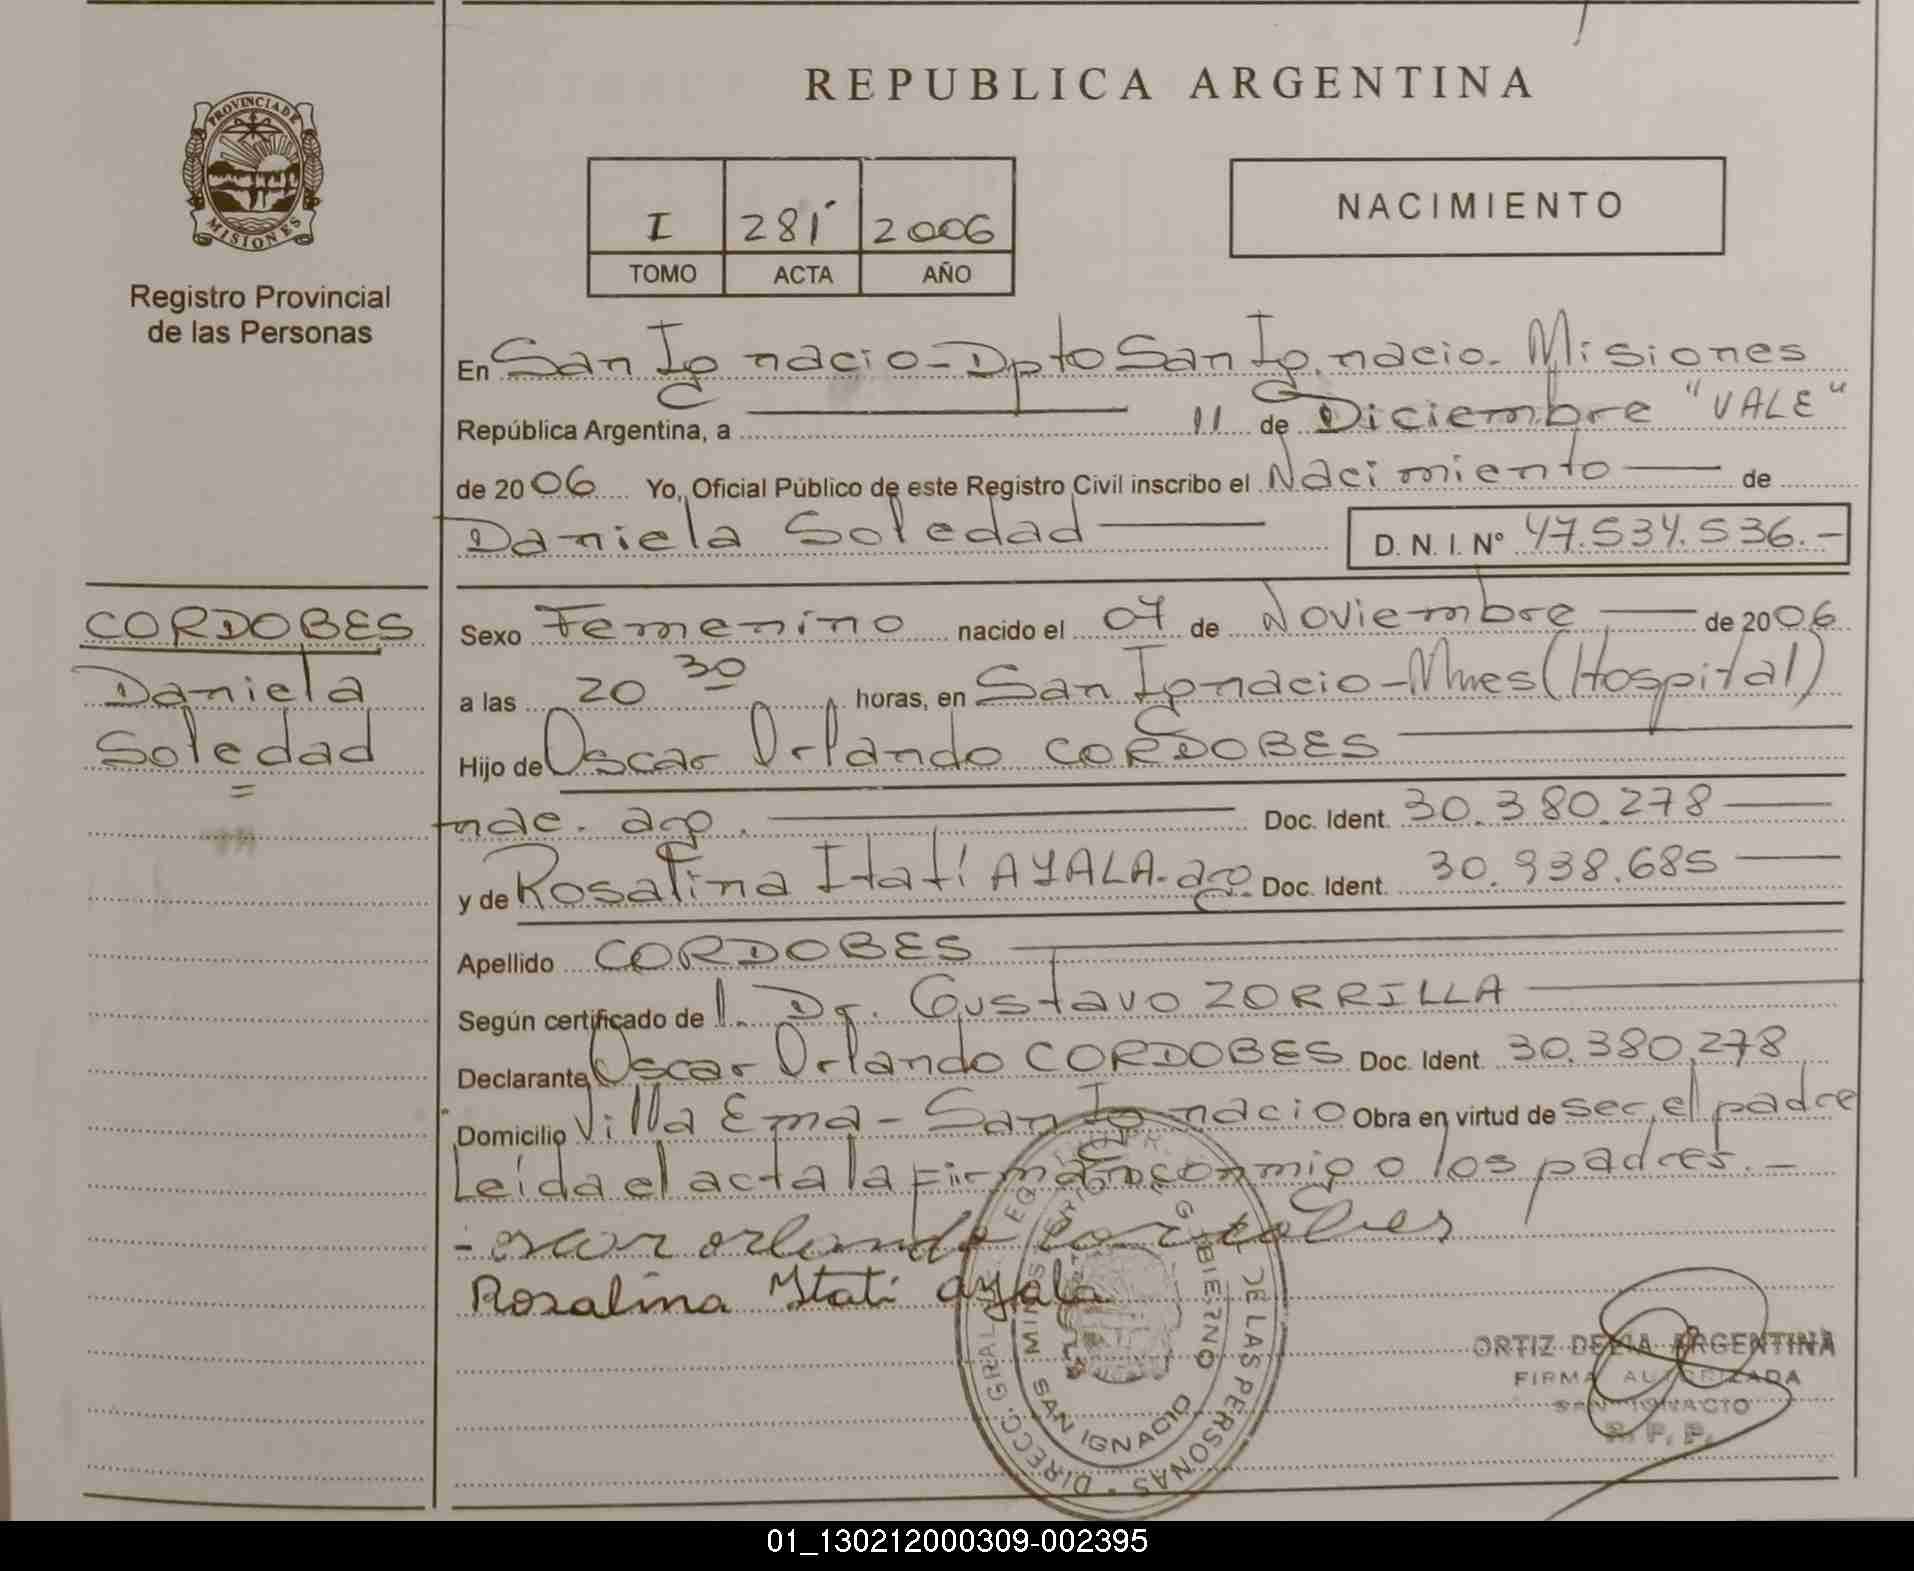 REPUBLICA ARGENTINA
PROVINCIA DE
MISIONES
Registro Provincial
de las Personas
I 281 2006
TOMO ACTA AÑO
NACIMIENTO
En San Ignacio - Dpto San Ignacio - Misiones
República Argentina, a 11 de Diciembre "VALE"
de 2006 Yo, Oficial Público de este Registro Civil inscribo el Nacimiento de
Daniela Soledad D. N. I. Nº 47.534.536.-
CORDOBES
Daniela
Soledad
Sexo Femenino nacido el 07 de Noviembre de 2006
a las 20 30 horas, en San Ignacio - Mnes (Hospital)
Hijo de Oscar Orlando CORDOBES
nac. arg. Doc. Ident. 30.380.278
y de Rosalina Itatí AYALA - arg. Doc. Ident. 30.938.685
Apellido CORDOBES
Según certificado de l. Dr. Gustavo ZORRILLA
Declarante Oscar Orlando CORDOBES Doc. Ident. 30.380.278
Domicilio Villa Ema - San Ignacio Obra en virtud de ser el padre
Leída el acta la Firman conmigo los padres. -
- oscar orlando cordobes
Rosalina Itati ayala
DIRECC. GRAL. DE LAS PERSONAS
GOBIERNO
SAN IGNACIO
ORTIZ DELIA ARGENTINA
FIRMA AUTORIZADA
SAN IGNACIO
R. P. P.
01_130212000309-002395